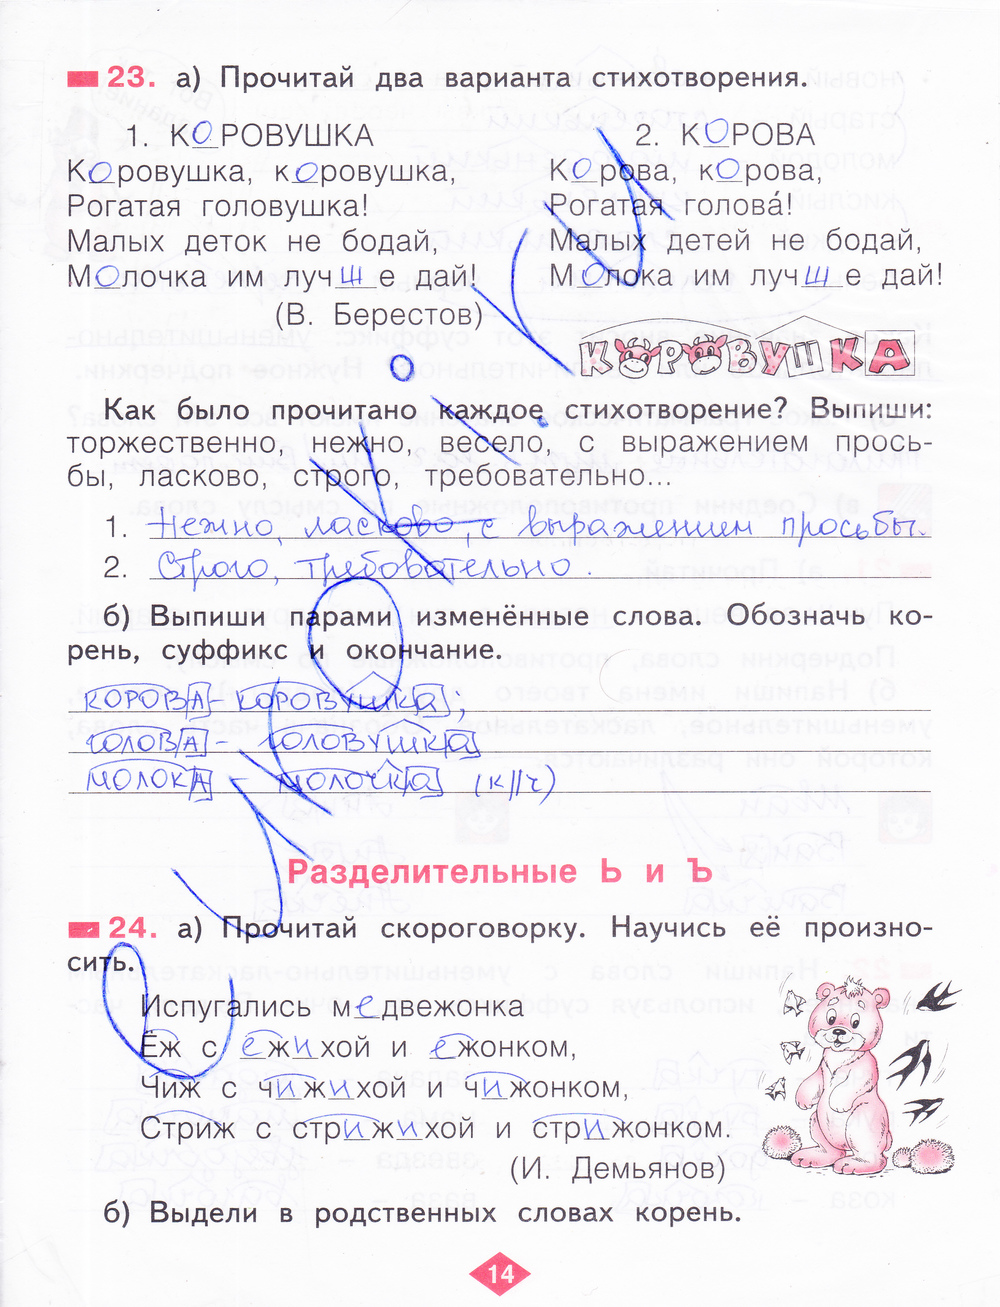 23. а) Прочитай два варианта стихотворения.
1. КОРОВУШКА
Коровушка, коровушка,
Рогатая головушка!
Малых деток не бодай,
Молочка им лучше дай!
(В. Берестов)
2. КОРОВА
Корова, корова,
Рогатая голова́!
Малых детей не бодай,
Молока им лучше дай!
КОРОВУШКА
Как было прочитано каждое стихотворение? Выпиши:
торжественно, нежно, весело, с выражением прось-
бы, ласково, строго, требовательно...
1. Нежно, ласково, с выражением просьбы.
2. Строго, требовательно.
б) Выпиши парами изменённые слова. Обозначь ко-
рень, суффикс и окончание.
КОРОВА - КОРОВУШКА;
ГОЛОВА - ГОЛОВУШКА
МОЛОКА - МОЛОЧКА (к||ч)
Разделительные Ь и Ъ
24. а) Прочитай скороговорку. Научись её произно-
сить.
Испугались медвежонка
Ёж с ежихой и ежонком,
Чиж с чижихой и чижонком,
Стриж с стрижихой и стрижонком.
(И. Демьянов)
б) Выдели в родственных словах корень.
14